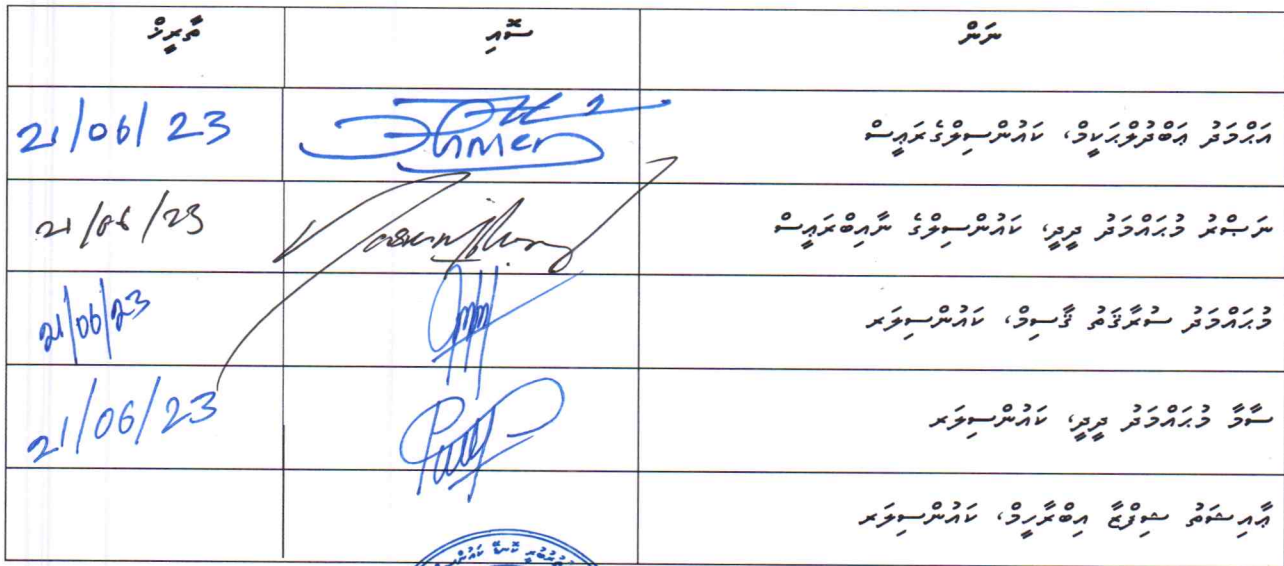 ނަން ސޮއި ތާރީޚް
އަޙްމަދު ޢަބްދުލްޙަކީމް، ކައުންސިލްގެރައީސް 21/06/23
ނަޞްރު މުޙައްމަދު ދީދީ، ކައުންސިލްގެ ނާއިބްރައީސް 21/06/23
މުޙައްމަދު ސުރާޤަތު ޤާސިމް، ކައުންސިލަރ 21/06/23
ސާމާ މުޙައްމަދު ދީދީ، ކައުންސިލަރ 21/06/23
ޢާއިޝަތު ޝިފްޒާ އިބްރާހީމް، ކައުންސިލަރ